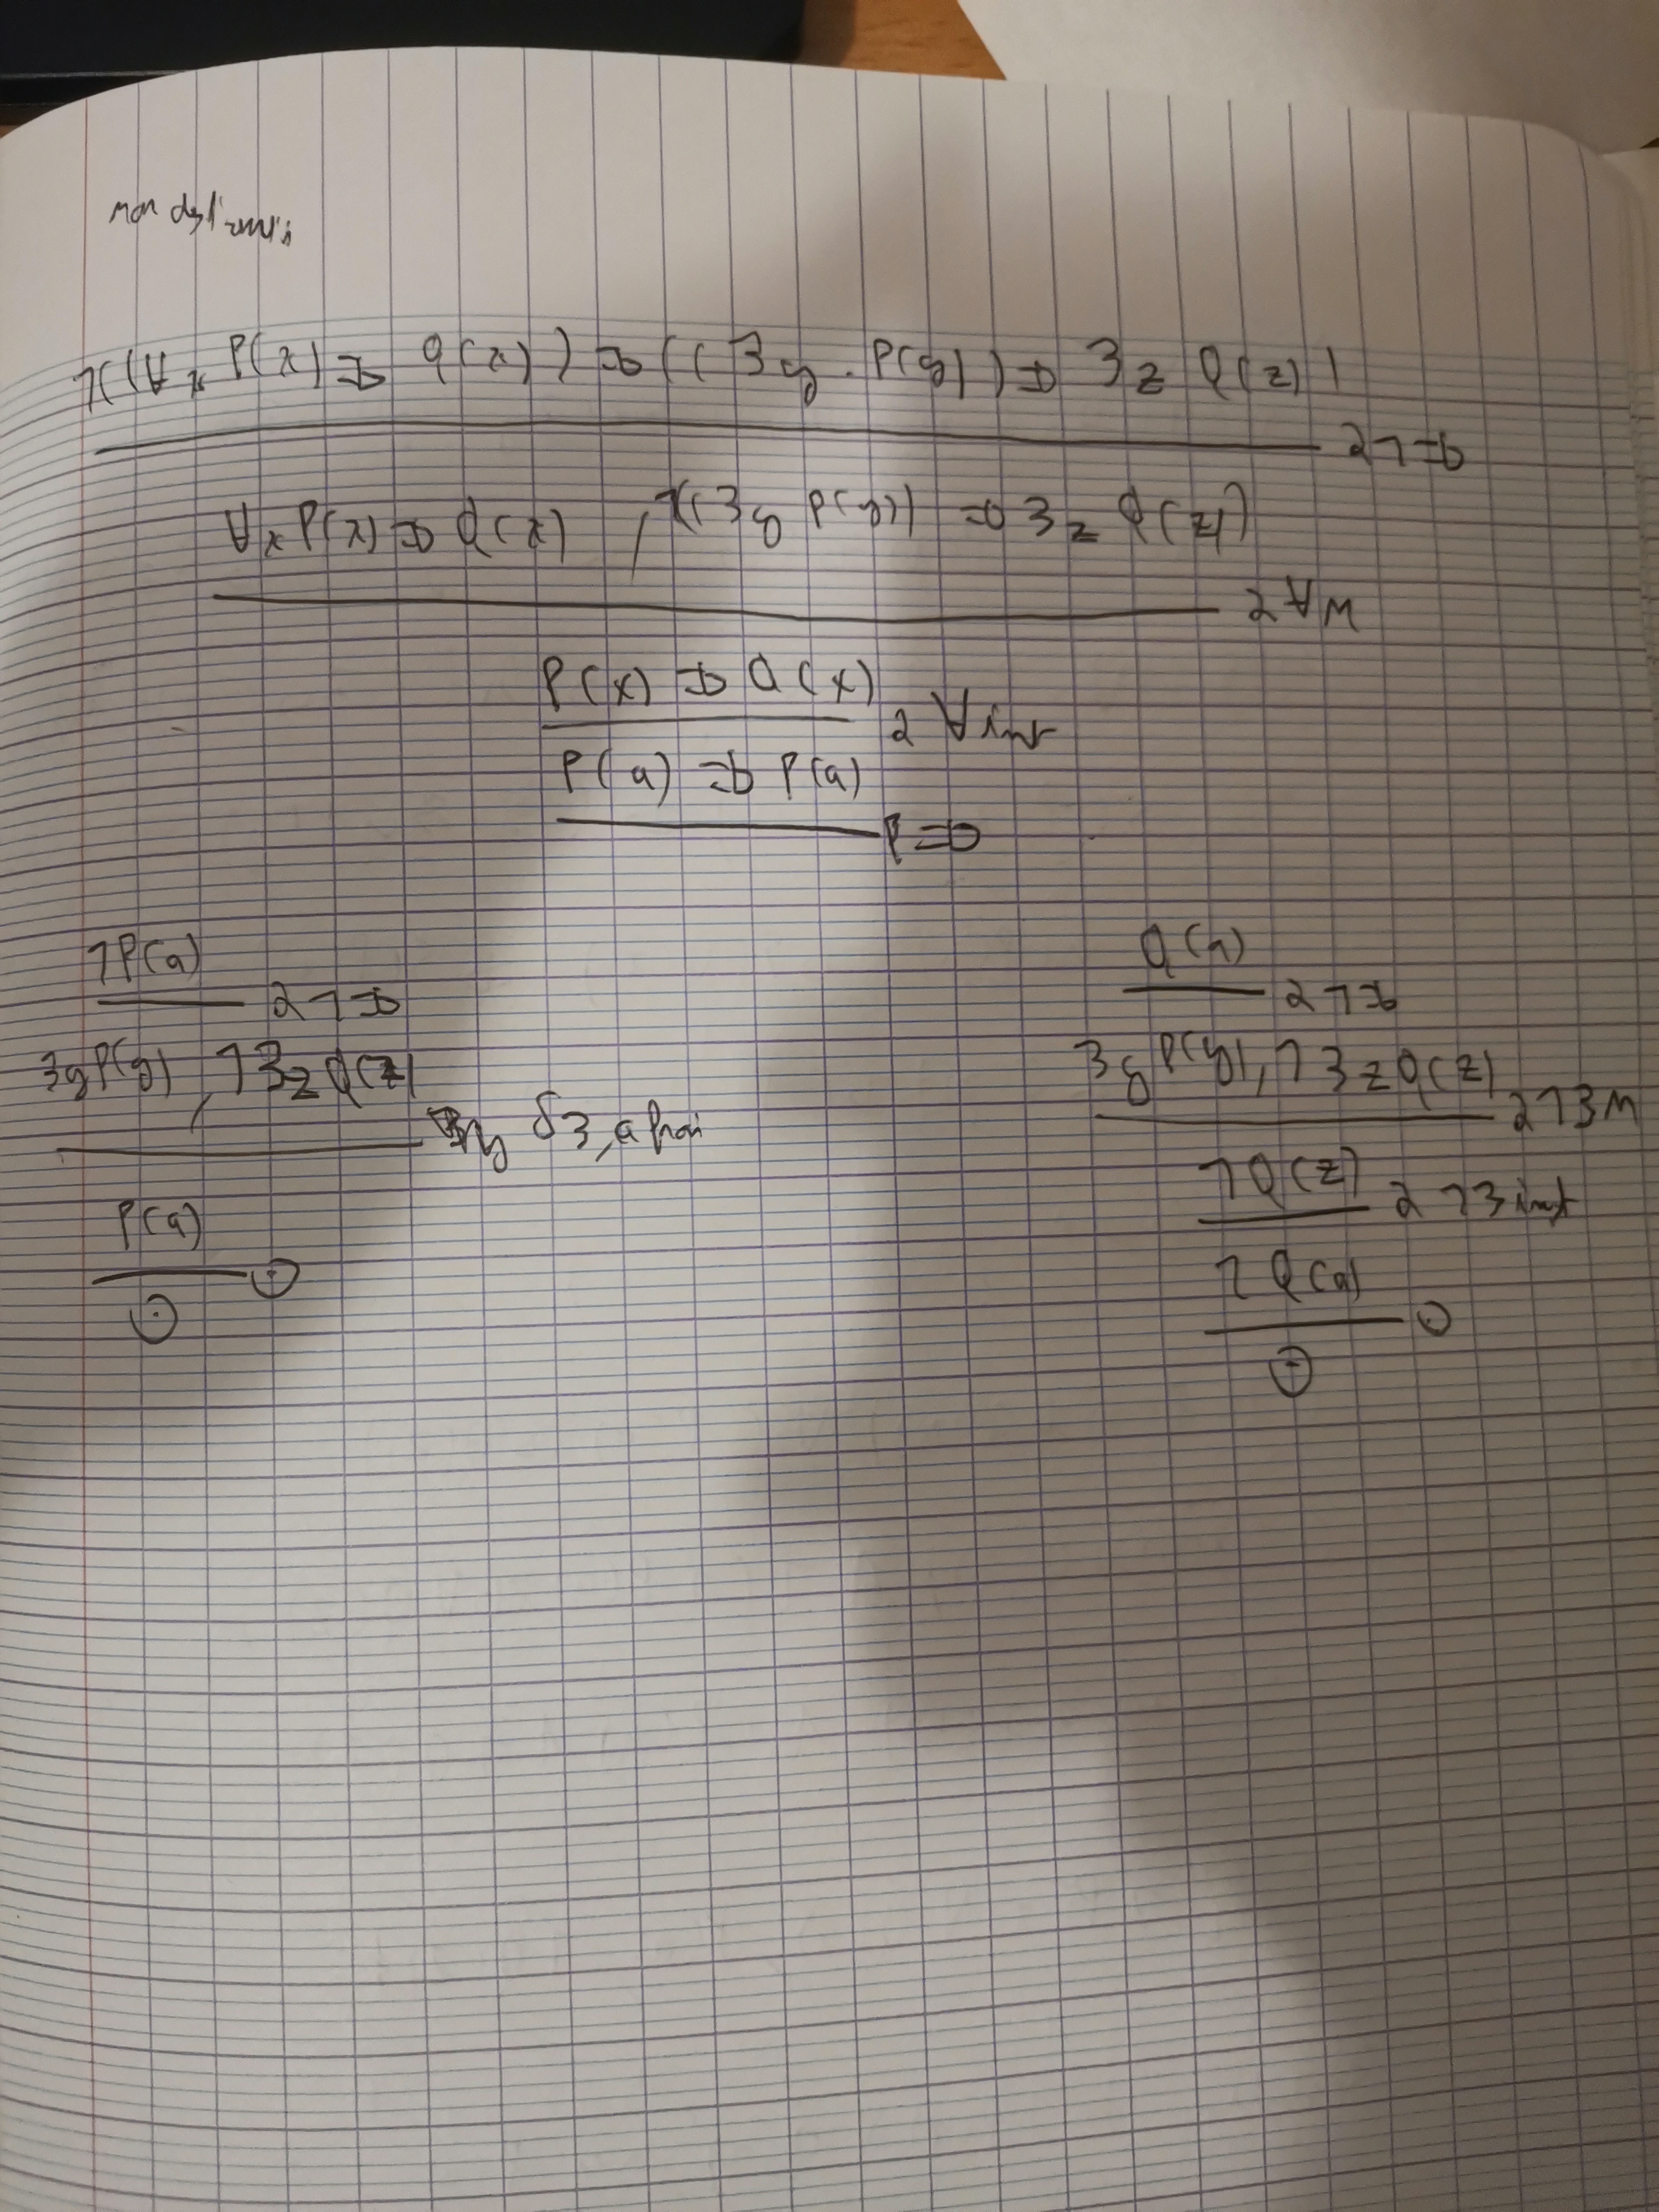 ¬((∀x P(x) ⇒ Q(x)) ⇒ ((∃y . P(y)) ⇒ ∃z Q(z))
α¬⇒
∀x P(x) ⇒ Q(x) , ¬((∃y P(y)) ⇒ ∃z Q(z))
γ∀M
P(x) ⇒ Q(x)
γ∀inst
P(a) ⇒ P(a)
β⇒
¬P(a)
α¬⇒
∃y P(y), ¬∃z Q(z)
δ∃, a frai
P(a)
⊙
⊙
Q(a)
α¬⇒
∃y P(y), ¬∃z Q(z)
γ¬∃M
¬Q(z)
γ¬∃inst
¬Q(a)
⊙
⊙